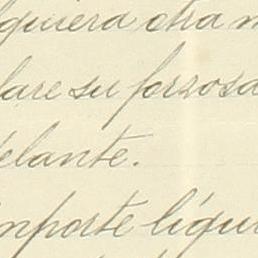 lquiera otra m
lare su forzosa
delante.
mporte líqui